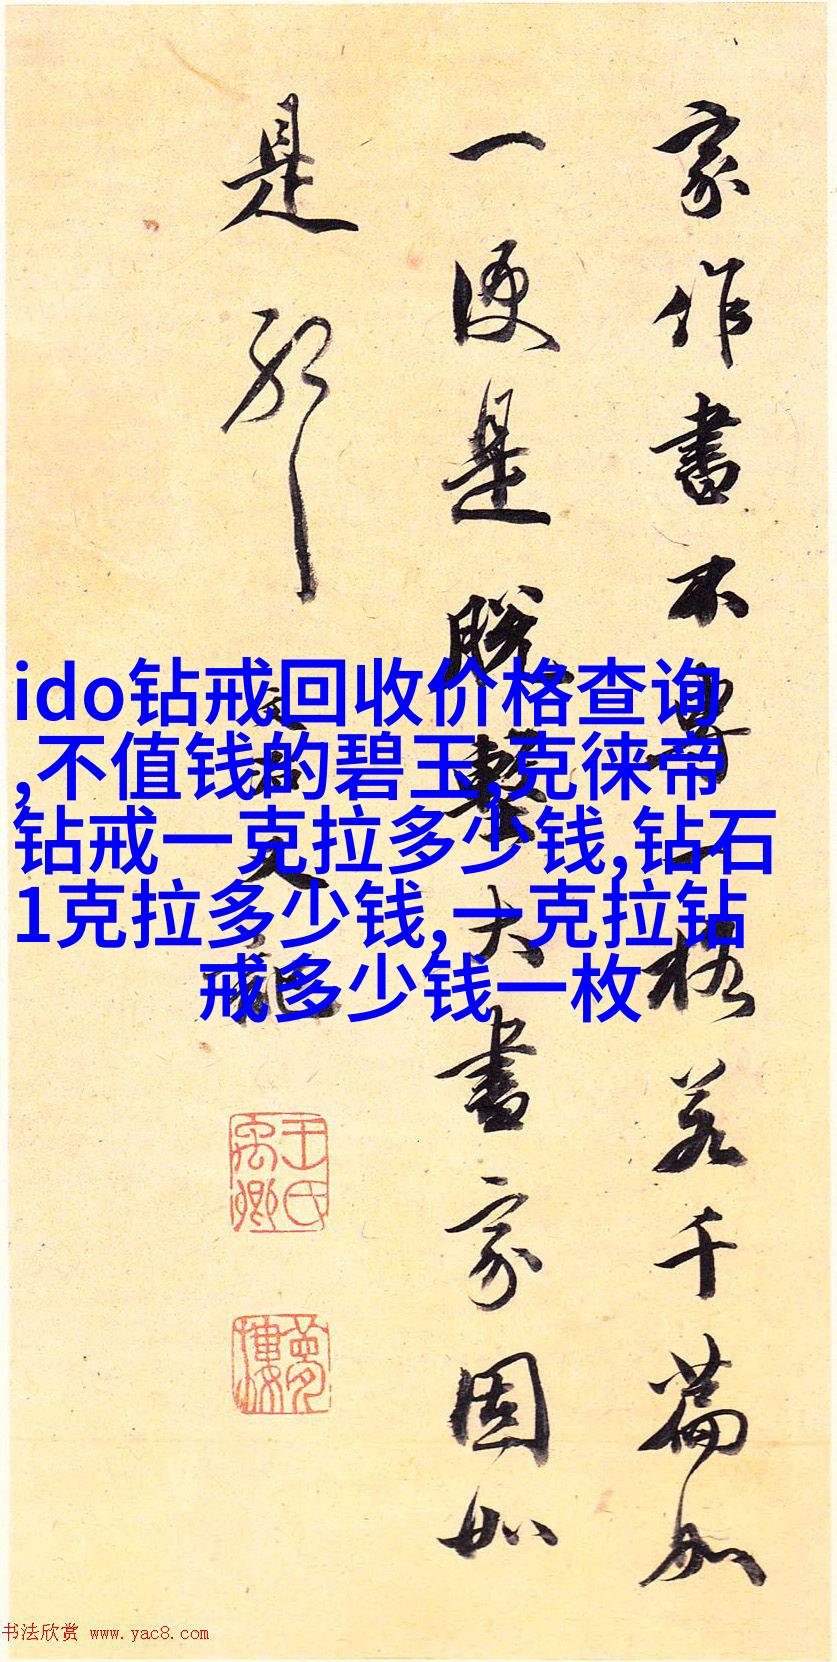 家作書不專一格若千篇如
一便是大書家固如
是耶
王氏禹卿
夢樓
ido钻戒回收价格查询
,不值钱的碧玉,克徕帝
钻戒一克拉多少钱,钻石
1克拉多少钱,一克拉钻
戒多少钱一枚
书法欣赏 www.yac8.com